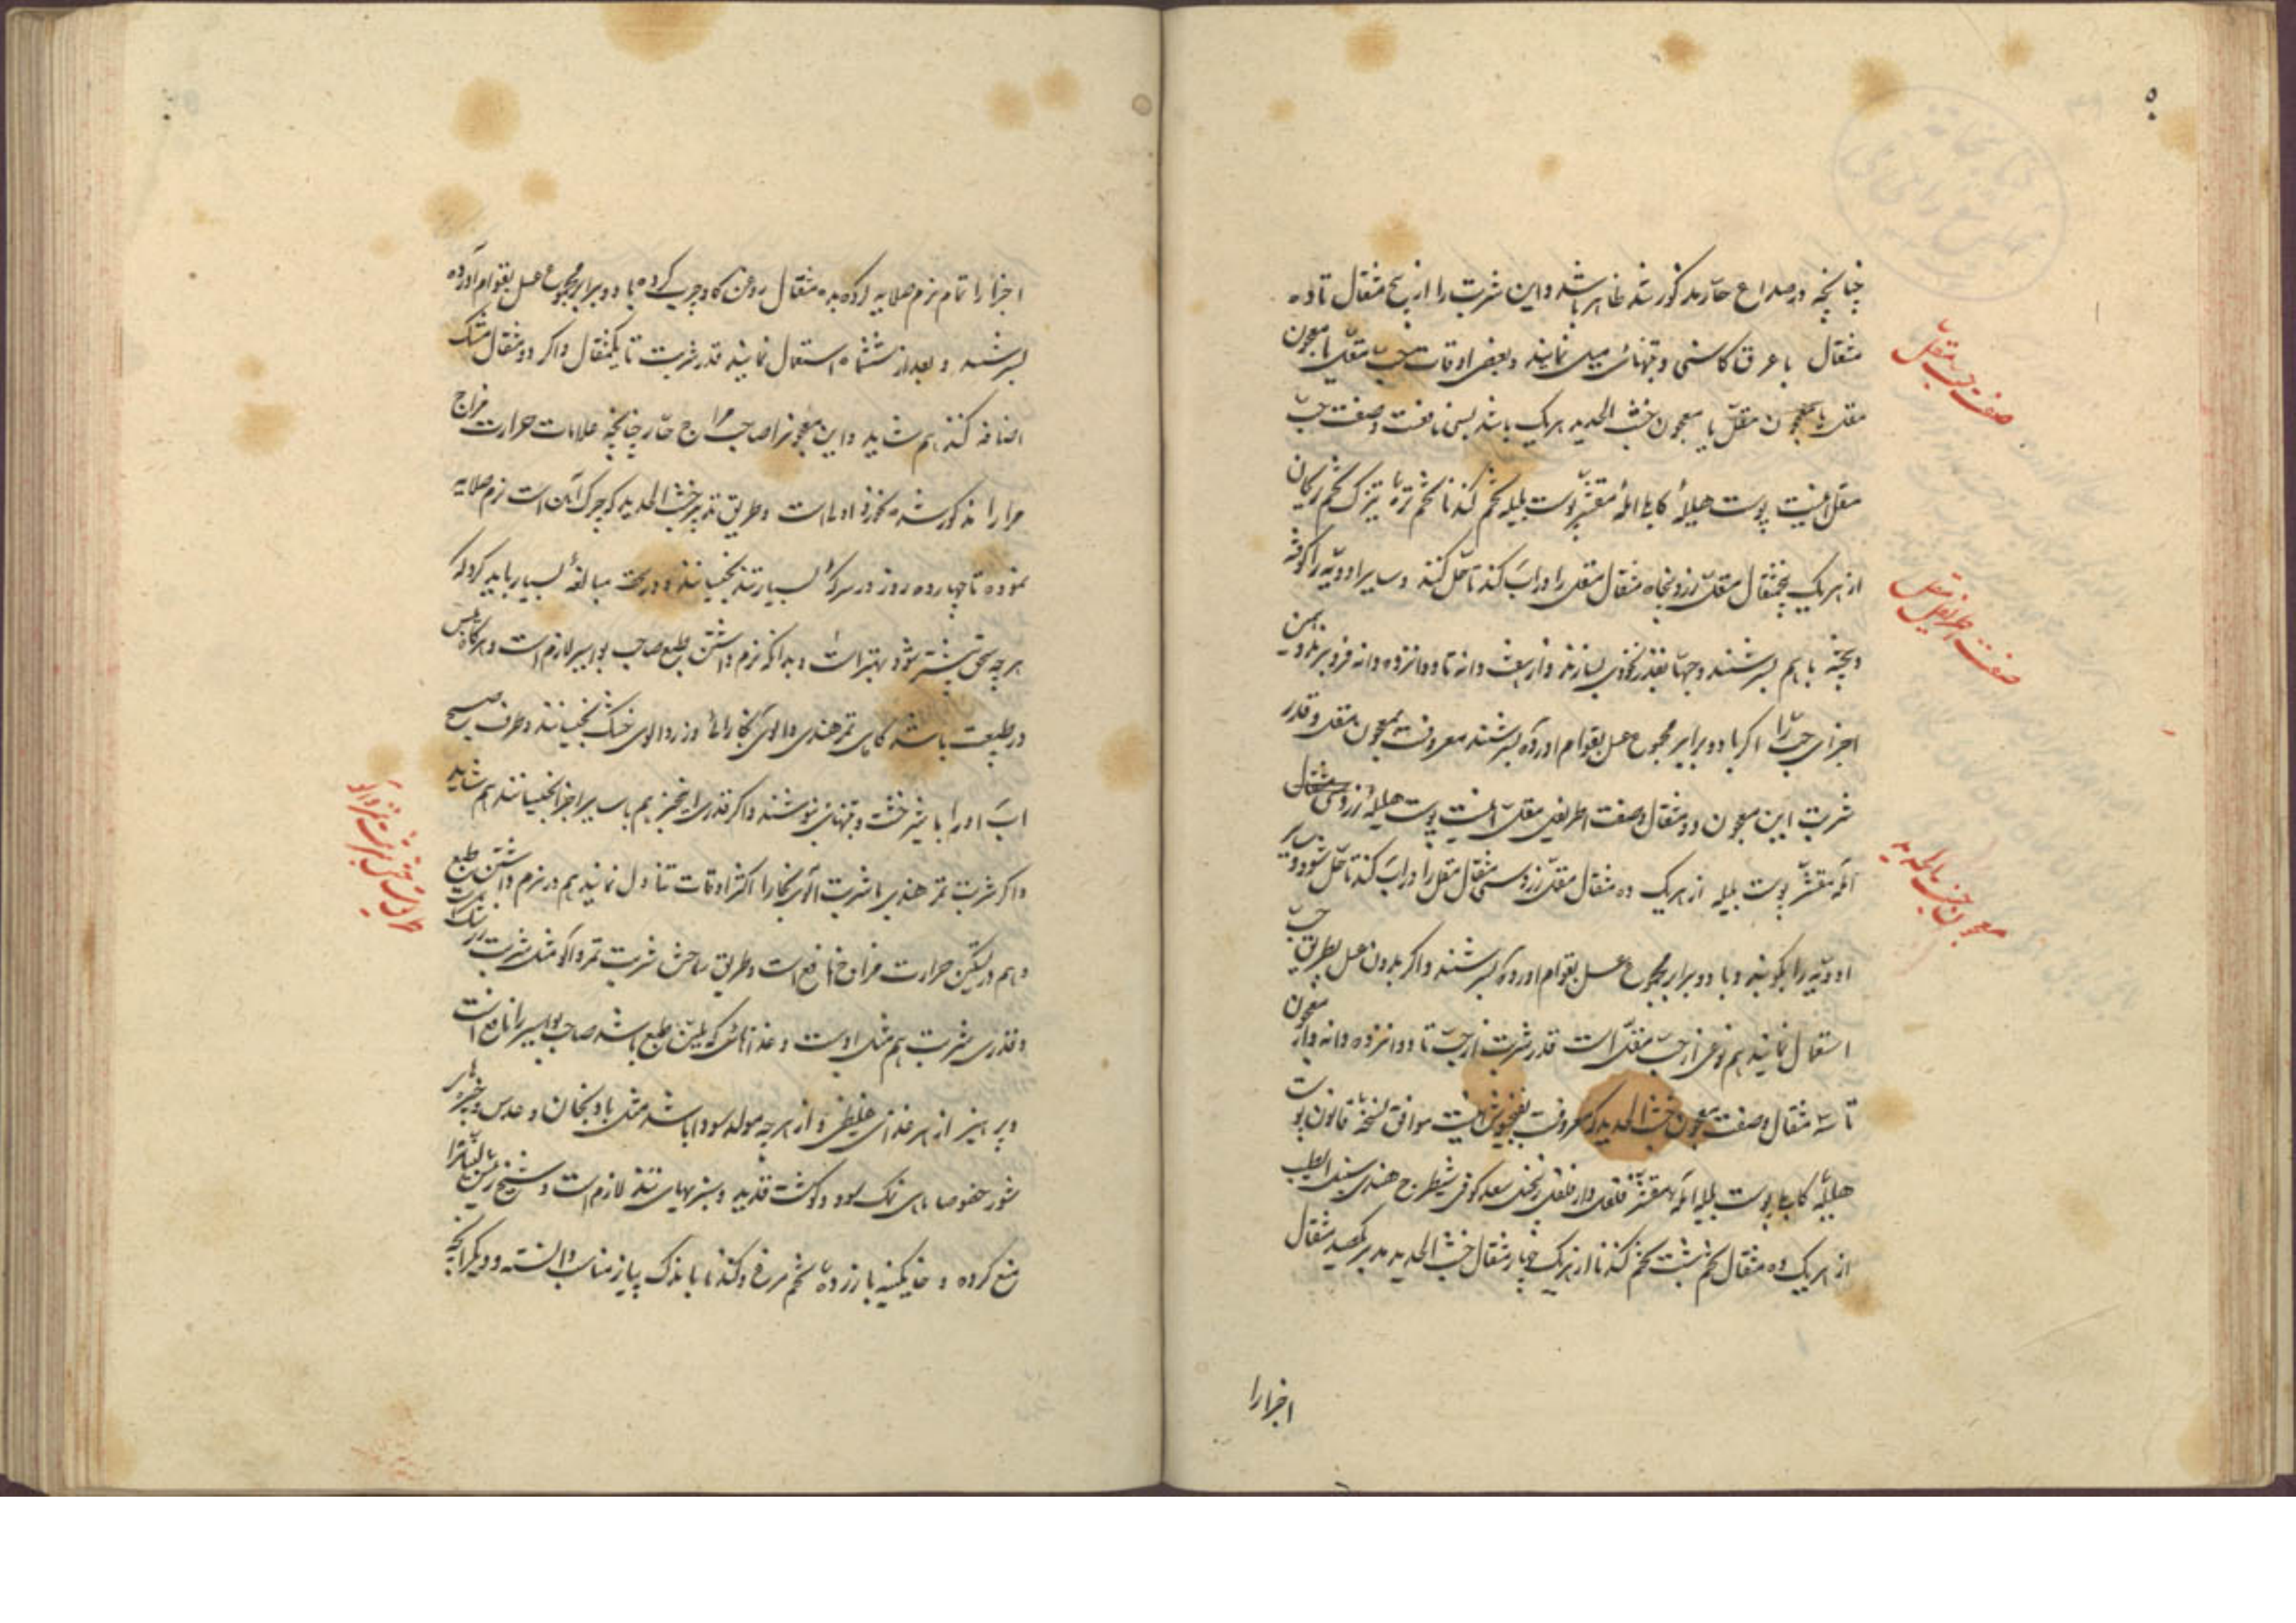 ۵۰
چنانچه در صداع حار مذکور شد ظاهر باشد و این شربت را از پنج مثقال تا ده
مثقال با عرق کاسنی و تنهائی میل نمایند و بعضی اوقات حب مقل یا معجون
مقل یا معجون خبث الحدید هر یک باشد بسی نافعست و صفت حب
مقل اینست پوست هلیلهٔ کابلی املهٔ مقشر پوست بلیله تخم گندنا تخم تره تیزک تخم ریحان
از هر یک پنجمثقال مقل ازرق پنجاه مثقال مقل را در اب کند تا حل کنند و سایر ادویه را کوفته
و بیخته با هم بسرشند و حبها بقدر نخودی بسازند و از هفت دانه تا دوانزده دانه فرو برند و همین
اجزای حب را اگر با دو برابر مجموع عسل بقوام اورده بسرشند معروفست بمعجون مقل و قدر
شربت این معجون دو مثقال و صفت اطریفل مقل اینست پوست هلیلهٔ زرد
آمله مقشر پوست بلیله از هر یک ده مثقال مقل ازرق سی مثقال مقل را در اب کند تا حل شود و سایر
ادویه را بکوبند و با دو برابر مجموع عسل بقوام اورده بسرشند و اگر بدون عسل بطریق حب
استعمال نمایند هم نوعی از حب مقل است قدر شربت از حب تا دوانزده دانه و از معجون
تا سه مثقال و صفت معجون خبث الحدید که معروفست بفنجنوش اینست موافق نسخهٔ قانون پوست
هلیلهٔ کابلی پوست بلیله املهٔ مقشر فلفل دارفلفل زنجبیل سعد کوفی شیطرج هندی سنبل الطیب
از هر یک ده مثقال تخم شبت تخم گندنا از هر یک چهار مثقال خبث الحدید مدبر یکصد مثقال
صفت حب مقل
صفت اطریفل مقل
معجون خبث الحدید
اجزا را
اجزا را تمام نرم صلایه کرده بده مثقال روغن گاو چرب کرده با دو برابر مجموع عسل بقوام آورده
بسرشند و بعد از ششماه استعمال نمایند قدر شربت تا یکمثقال و اگر دو مثقال مشک
اضافه کنند هم شاید و این معجون را صاحب مزاج حار چنانچه علامات حرارت مزاج
مر او را مذکور شد نخورد اولی است و طریق تدبیر خبث الحدید که چرک آهن است نرم صلایه
نموده تا چهارده روز در سرکهٔ بسیار تند بخیسانند و در سحق مبالغهٔ بسیار باید کرد که
هر چه سحق بیشتر شود بهتر است و بدانکه نرم داشتن طبع صاحب بواسیر لازم است و هرگاه یبس
در طبیعت باشد گاهی تمر هندی و الوی بخارائی و زردالوی خشک بخیسانند و طرف صبح
اب او را با شیرخشت و تنهائی بنوشند و اگر قدری هم با سایر اجزا بخیسانند هم شاید
و اگر شربت تمر هندی یا شربت الوی بخارا اکثر اوقات تناول نمایند هم در نرم داشتن طبع
و هم در تسکین حرارت مزاج نافع است و طریق ساختن شربت تمر و آلو مثل شربت زرشک
و قدر شربت هم مثل اوست و غذاهائی که ملین طبع باشد صاحب بواسیر را نافع است
و پرهیز از هر غذای غلیظی و از هر چه مولد سودا باشد مثل بادنجان و عدس و پنیر
شور خصوصا ماهی نمک سود و گوشت قدید و سبزیهای تند لازم است و شیخ رئیس
منع کرده و خاگینه با زردهٔ تخم مرغ و گندنا با اندک پیاز مناسب دانسته و دیگر آنچه